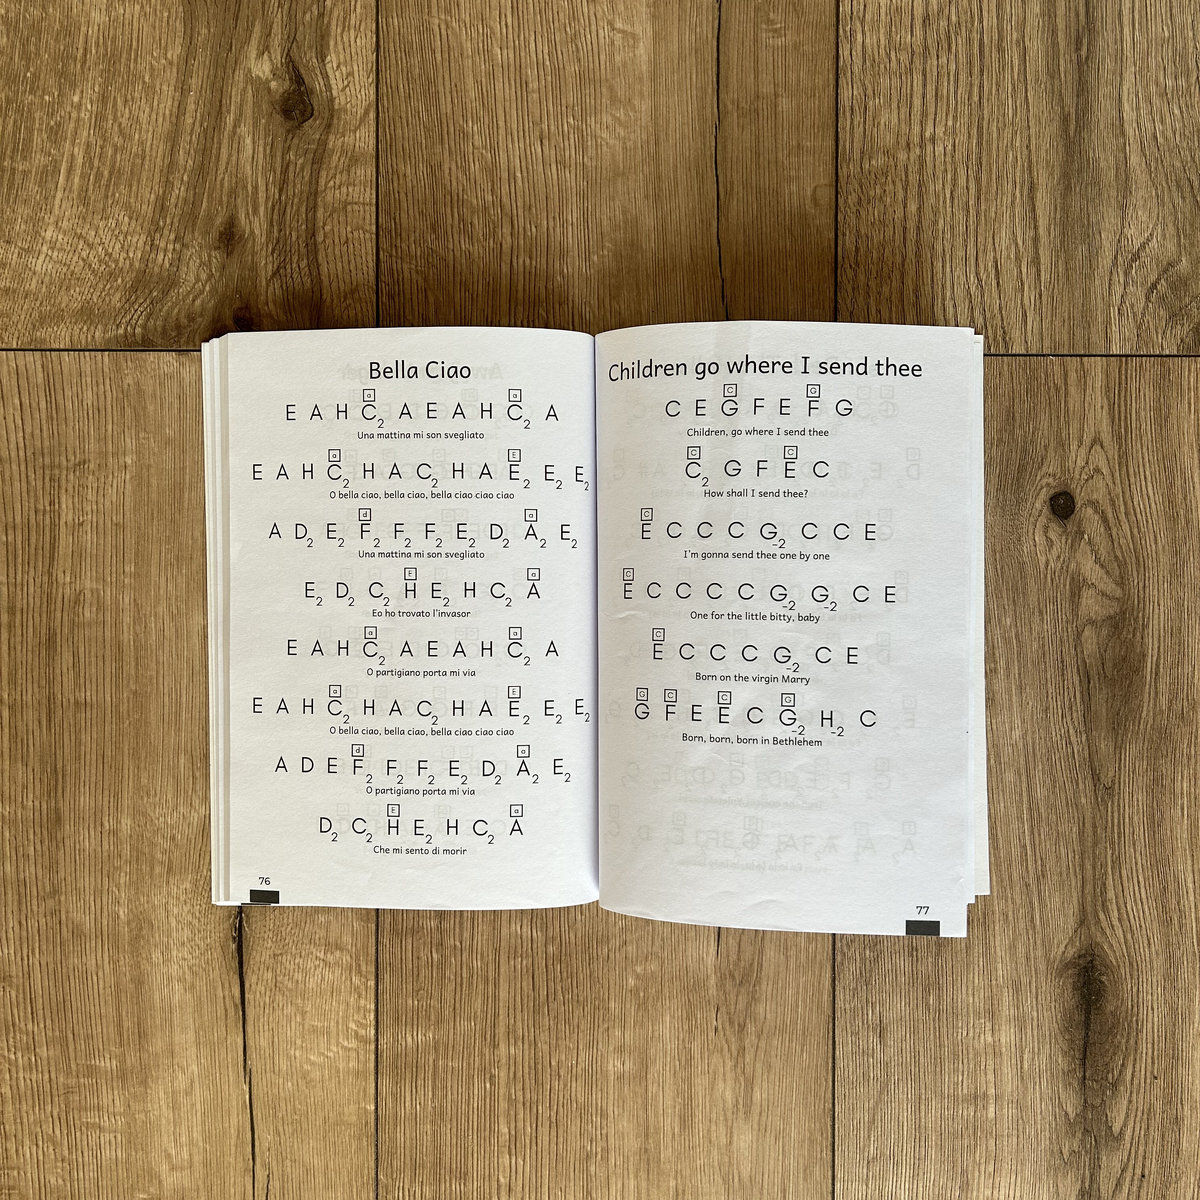 Bella Ciao
a a
E A H C2 A E A H C2 A
Una mattina mi son svegliato
a E
E A H C2 H A C2 H A E2 E2 E2
O bella ciao, bella ciao, bella ciao ciao ciao
d a
A D2 E2 F2 F2 F2 E2 D2 A2 E2
Una mattina mi son svegliato
E a
E2 D2 C2 H E2 H C2 A
Eo ho trovato l'invasor
a a
E A H C2 A E A H C2 A
O partigiano porta mi via
a E
E A H C2 H A C2 H A E2 E2 E2
O bella ciao, bella ciao, bella ciao ciao ciao
d a
A D E F2 F2 F2 E2 D2 A2 E2
O partigiano porta mi via
E a
D2 C2 H E2 H C2 A
Che mi sento di morir
76
Children go where I send thee
C G
C E G F E F G
Children, go where I send thee
C C
C2 G F E C
How shall I send thee?
C
E C C C G-2 C C E
I'm gonna send thee one by one
C
E C C C C G-2 G-2 C E
One for the little bitty, baby
C
E C C C G-2 C E
Born on the virgin Marry
G F C G
G F E E C G-2 H-2 C
Born, born, born in Bethlehem
77